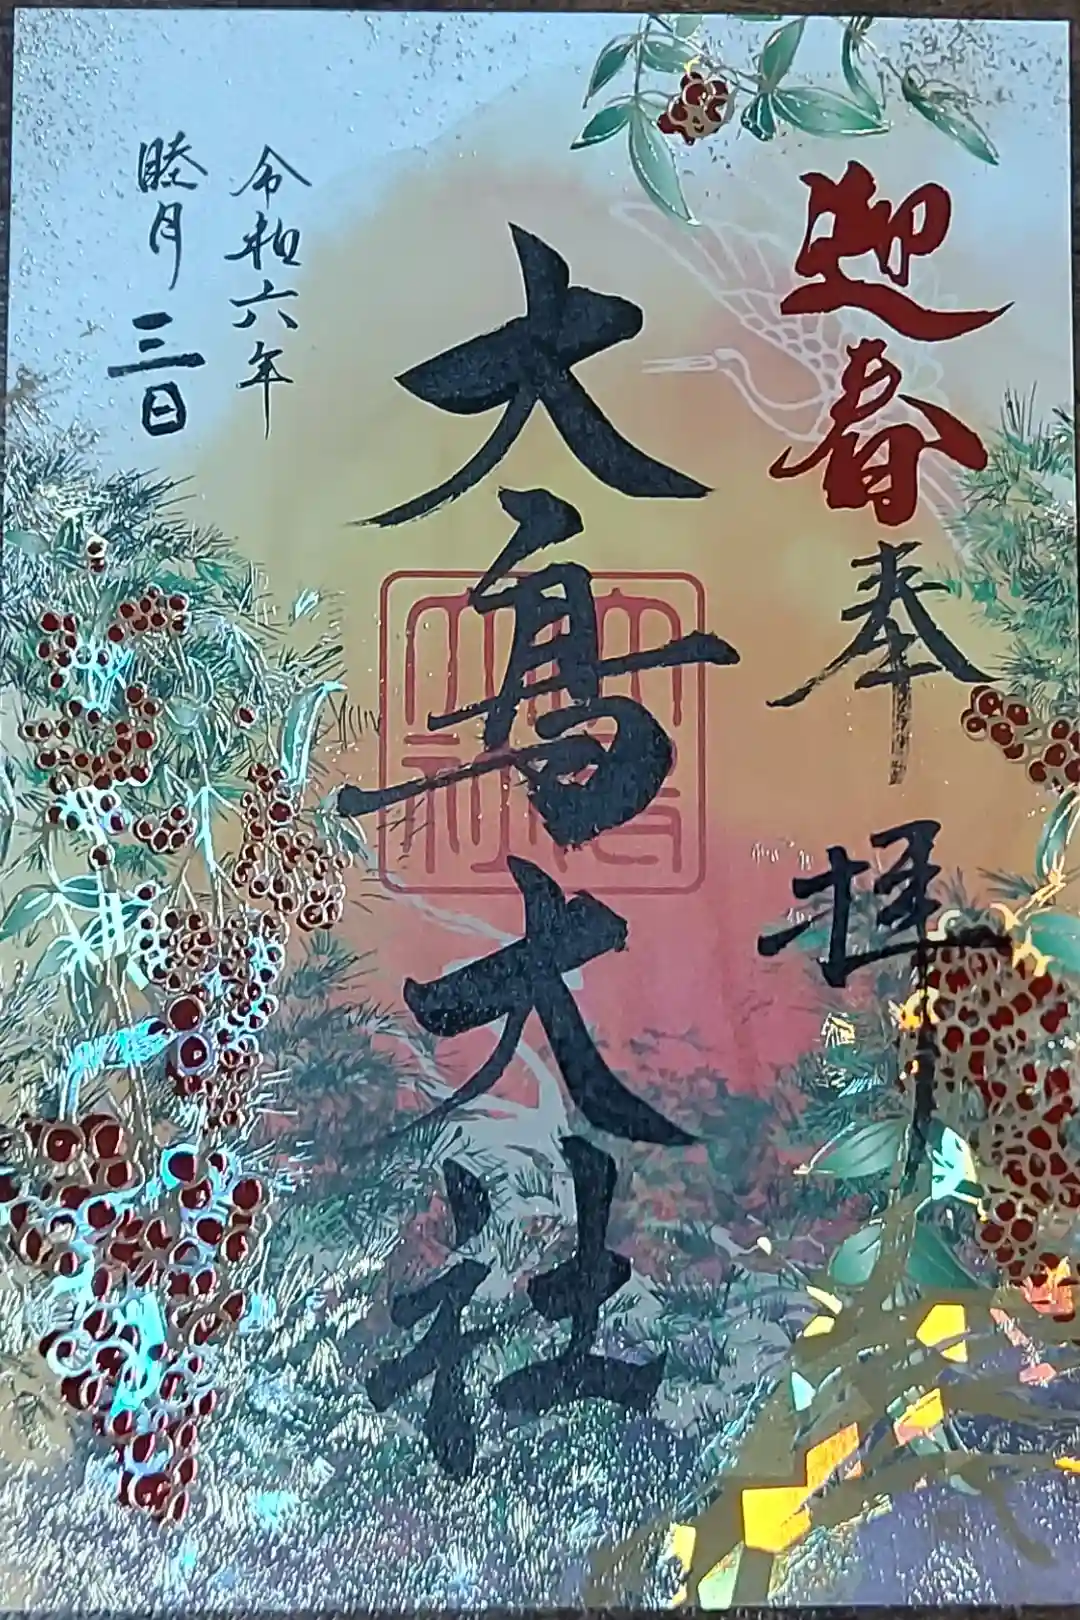 迎春
奉拝
大鳥大社
令和六年
睦月三日